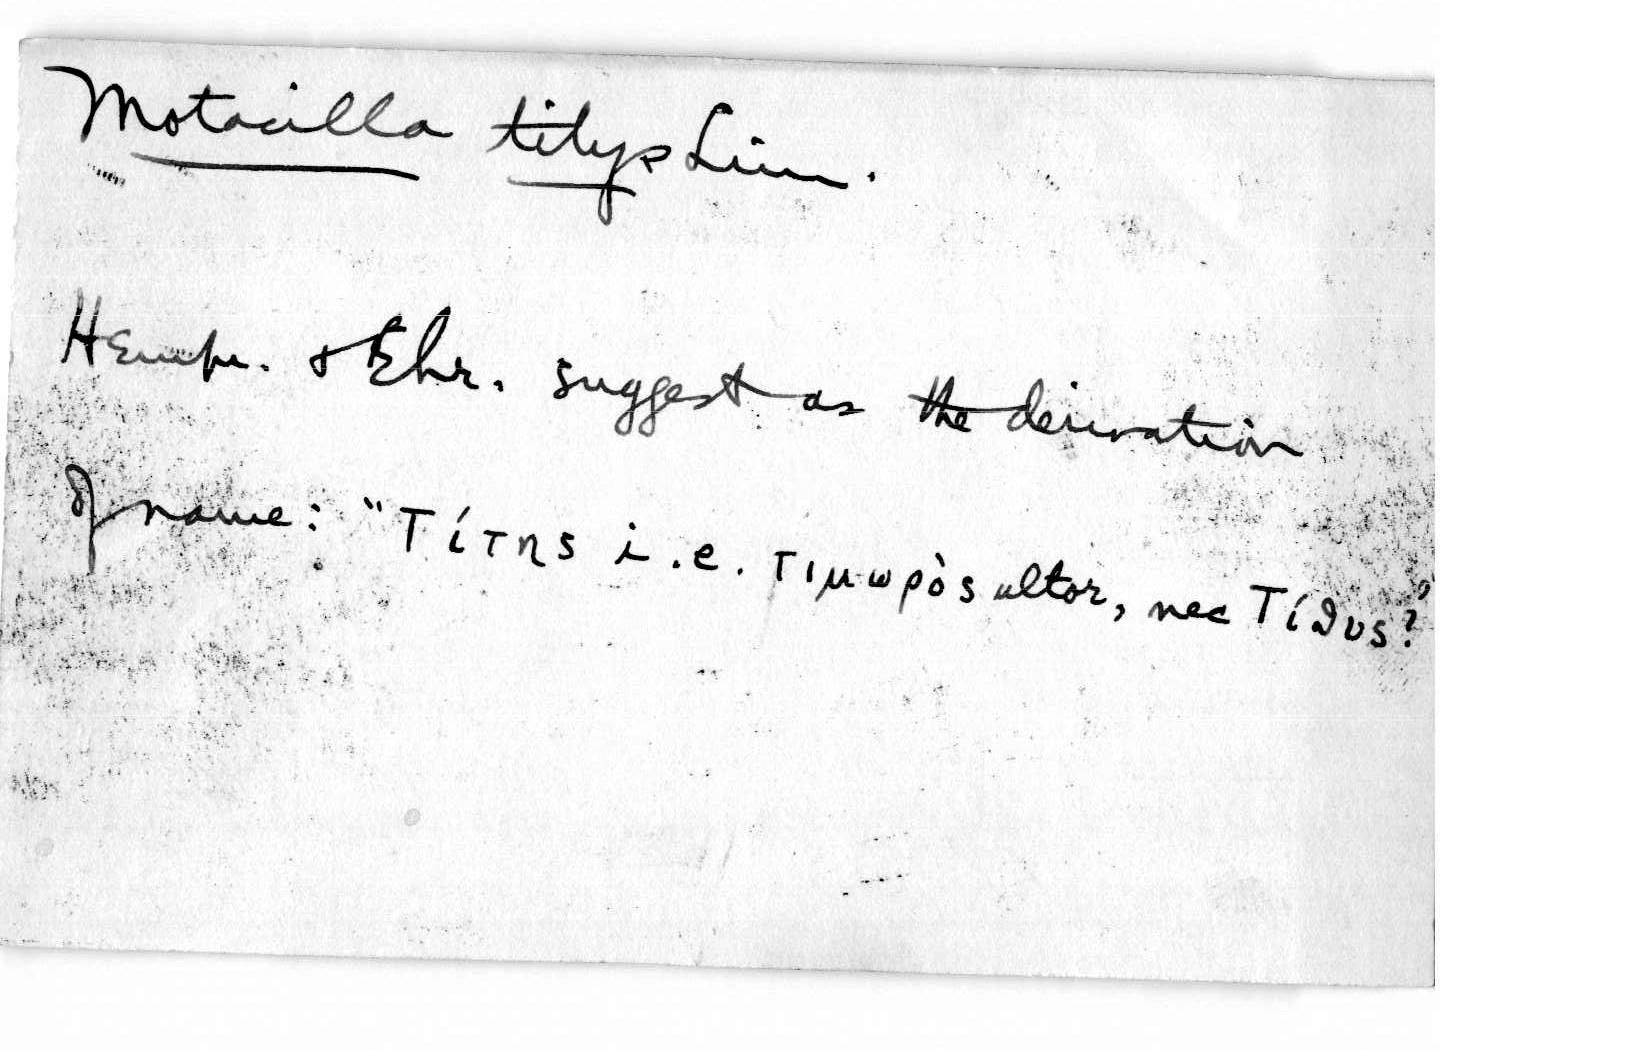 Motacilla titys Linn.
Hempr. & Ehr. suggest as the derivation
of name: "Τίτης i.e. τιμωρὸς ultor, nec Τίθυς?"